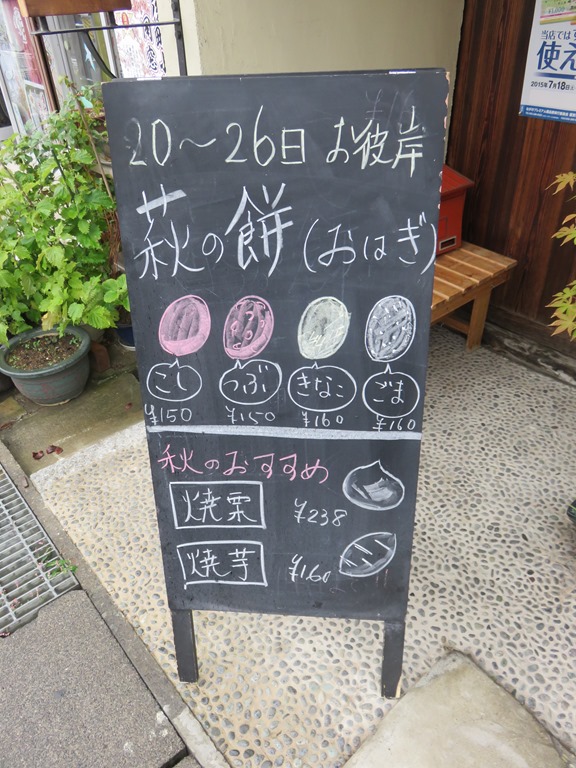 20〜26日 お彼岸
萩の餅(おはぎ)
こし つぶ きなこ ごま
¥150 ¥150 ¥160 ¥160
秋のおすすめ
焼栗 ¥238
焼芋 ¥160
当店では
使え
2015年7月18日